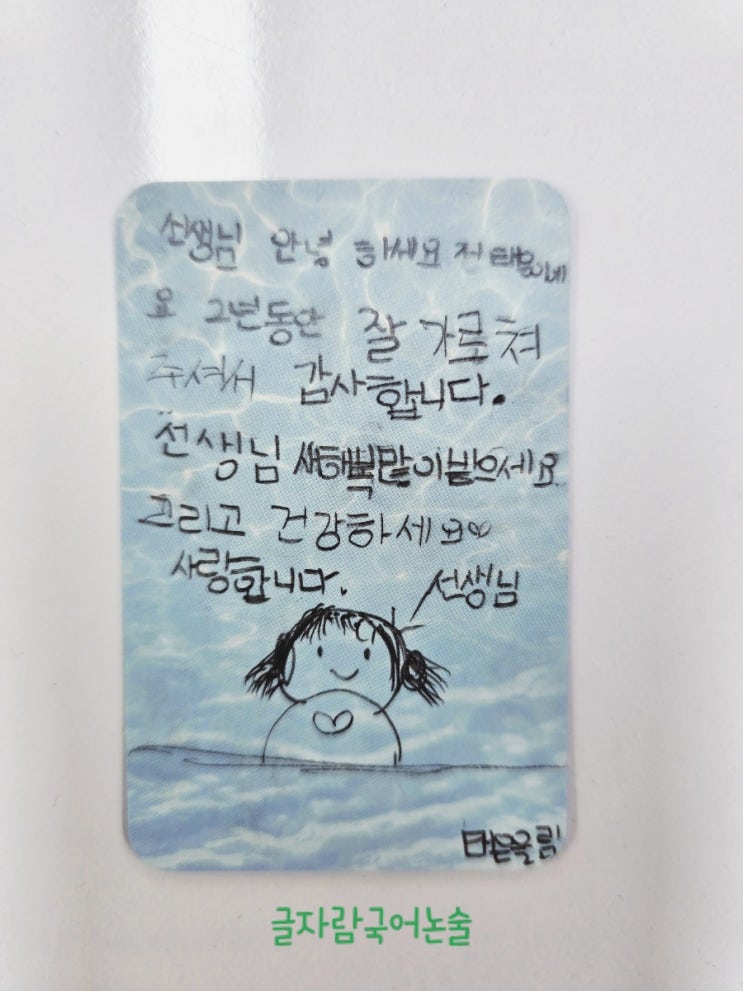 선생님 안녕 하세요 저 태웅이예
요 2년동안 잘 가르쳐
주셔서 감사합니다.
선생님 새해복많이받으세요
그리고 건강하세요
사랑합니다.
선생님
올림
글자람국어논술